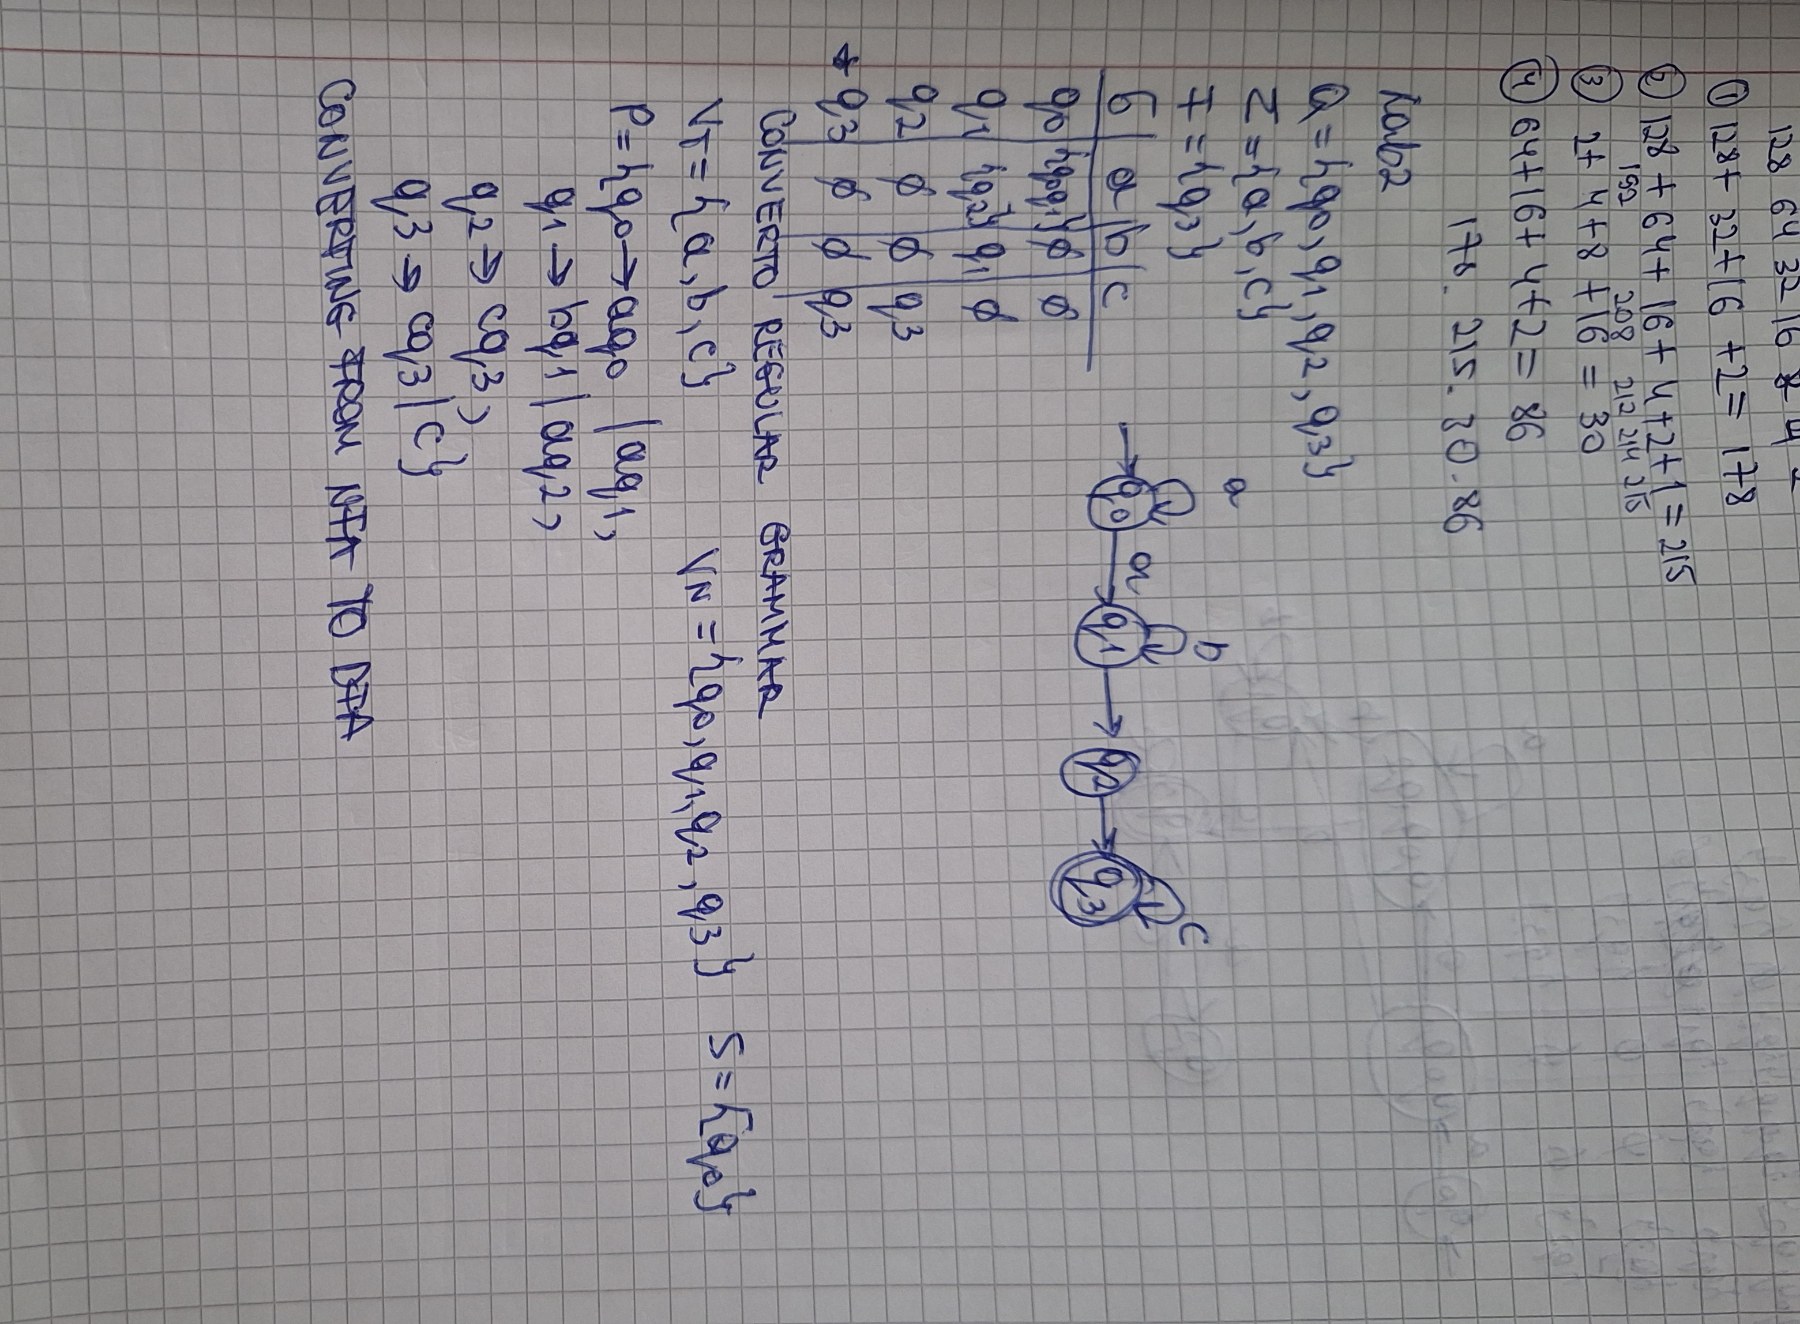 128 64 32 16 8 4 2
① 128 + 32 + 16 + 2 = 178
② 128 + 64 + 16 + 4 + 2 + 1 = 215
192 208 212 214 215
③ 2 + 4 + 8 + 16 = 30
④ 64 + 16 + 4 + 2 = 86
178. 215. 30. 86
Lab2
Q = {q0, q1, q2, q3}
Σ = {a, b, c}
F = {q3}
δ | a | b | c
q0 | {q0q1} | ∅ | ∅
q1 | {q2} | q1 | ∅
q2 | ∅ | ∅ | q3
* q3 | ∅ | ∅ | q3
a b c
q0 a q1 q2 q3
CONVERTO REGULAR GRAMMAR
VT = {a, b, c} VN = {q0, q1, q2, q3} S = {q0}
P = {q0 → aq0 | aq1,
q1 → bq1 | aq2,
q2 → cq3,
q3 → cq3 | c}
CONVERTING FROM NFA TO DFA